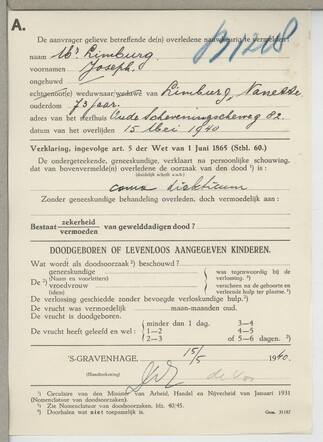 A.
De aanvrager gelieve betreffende de(n) overledene nauwkeurig te vermelden:
B1218
naam Mr Limburg,
voornamen Joseph,
ongehuwd
echtgenoot(e) weduwe/weduwe van Limburg, Nanette
ouderdom 73 jaar.
adres van het sterfhuis Oude Scheveningscheweg 82.
datum van het overlijden 15 Mei 1940
Verklaring, ingevolge art. 5 der Wet van 1 Juni 1865 (Stbl. 60.)
De ondergeteekende, geneeskundige, verklaart na persoonlijke schouwing,
dat van bovenvermeld(en) overledene de oorzaak van den dood ¹) is:
(duidelijk schrift s.v.p.)
coma
Zonder geneeskundige behandeling overleden, doch vermoedelijk aan:
Bestaat zekerheid vermoeden van gewelddadigen dood?
DOODGEBOREN OF LEVENLOOS AANGEGEVEN KINDEREN.
Wat wordt als doodsoorzaak ²) beschouwd?
De ³) geneeskundige (Naam en voorletters) vroedvrouw
was tegenwoordig bij de verlossing. ³)
verscheen na de geboorte en verleende hulp ter plaatse. ³)
De verlossing geschiedde zonder bevoegde verloskundige hulp. ³)
De vrucht was vermoedelijk maan-maanden oud.
De vrucht is doodgeboren.
De vrucht heeft geleefd en wel:
minder dan 1 dag. 3—4
1—2 4—5
2—3 of 5—6 dagen. ³)
'S-GRAVENHAGE, 15/5 1940.
(Handteekening)
de Vos
¹) Circulaire van den Minister van Arbeid, Handel en Nijverheid van Januari 1931
(Nomenclatuur van doodsoorzaken).
²) Zie Nomenclatuur van doodsoorzaken. blz. 40/45.
³) Doorhalen wat niet toepasselijk is.
Gem. 31187